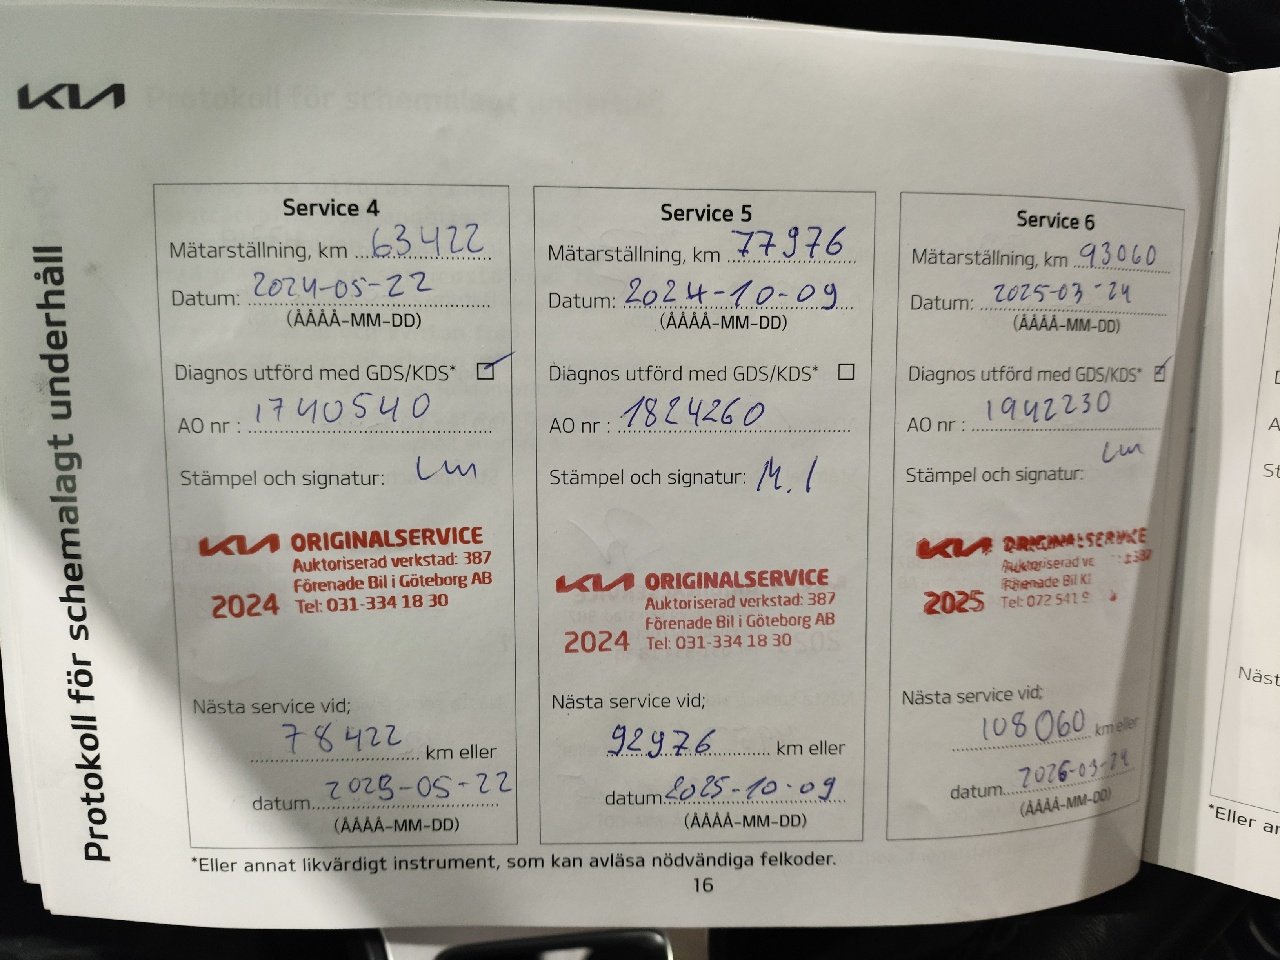 KIA
Protokoll för schemalagt underhåll
Service 4
Mätarställning, km 63422
Datum: 2024-05-22
(ÅÅÅÅ-MM-DD)
Diagnos utförd med GDS/KDS*
AO nr : 1740540
Stämpel och signatur: Lm
KIA ORIGINALSERVICE
Auktoriserad verkstad: 387
Förenade Bil i Göteborg AB
2024 Tel: 031-334 18 30
Nästa service vid;
78422 km eller
datum 2025-05-22
(ÅÅÅÅ-MM-DD)
Service 5
Mätarställning, km 77976
Datum: 2024-10-09
(ÅÅÅÅ-MM-DD)
Diagnos utförd med GDS/KDS*
AO nr : 1824260
Stämpel och signatur: M.I
KIA ORIGINALSERVICE
Auktoriserad verkstad: 387
Förenade Bil i Göteborg AB
2024 Tel: 031-334 18 30
Nästa service vid;
92976 km eller
datum 2025-10-09
(ÅÅÅÅ-MM-DD)
Service 6
Mätarställning, km 93060
Datum: 2025-03-24
(ÅÅÅÅ-MM-DD)
Diagnos utförd med GDS/KDS*
AO nr : 1942230
Stämpel och signatur: Lm
KIA ORIGINALSERVICE
Auktoriserad 387
Förenade Bil
2025 Tel: 072 541
Nästa service vid;
108060 km eller
datum 2026-03-24
(ÅÅÅÅ-MM-DD)
*Eller annat likvärdigt instrument, som kan avläsa nödvändiga felkoder.
16
Näst
*Eller an